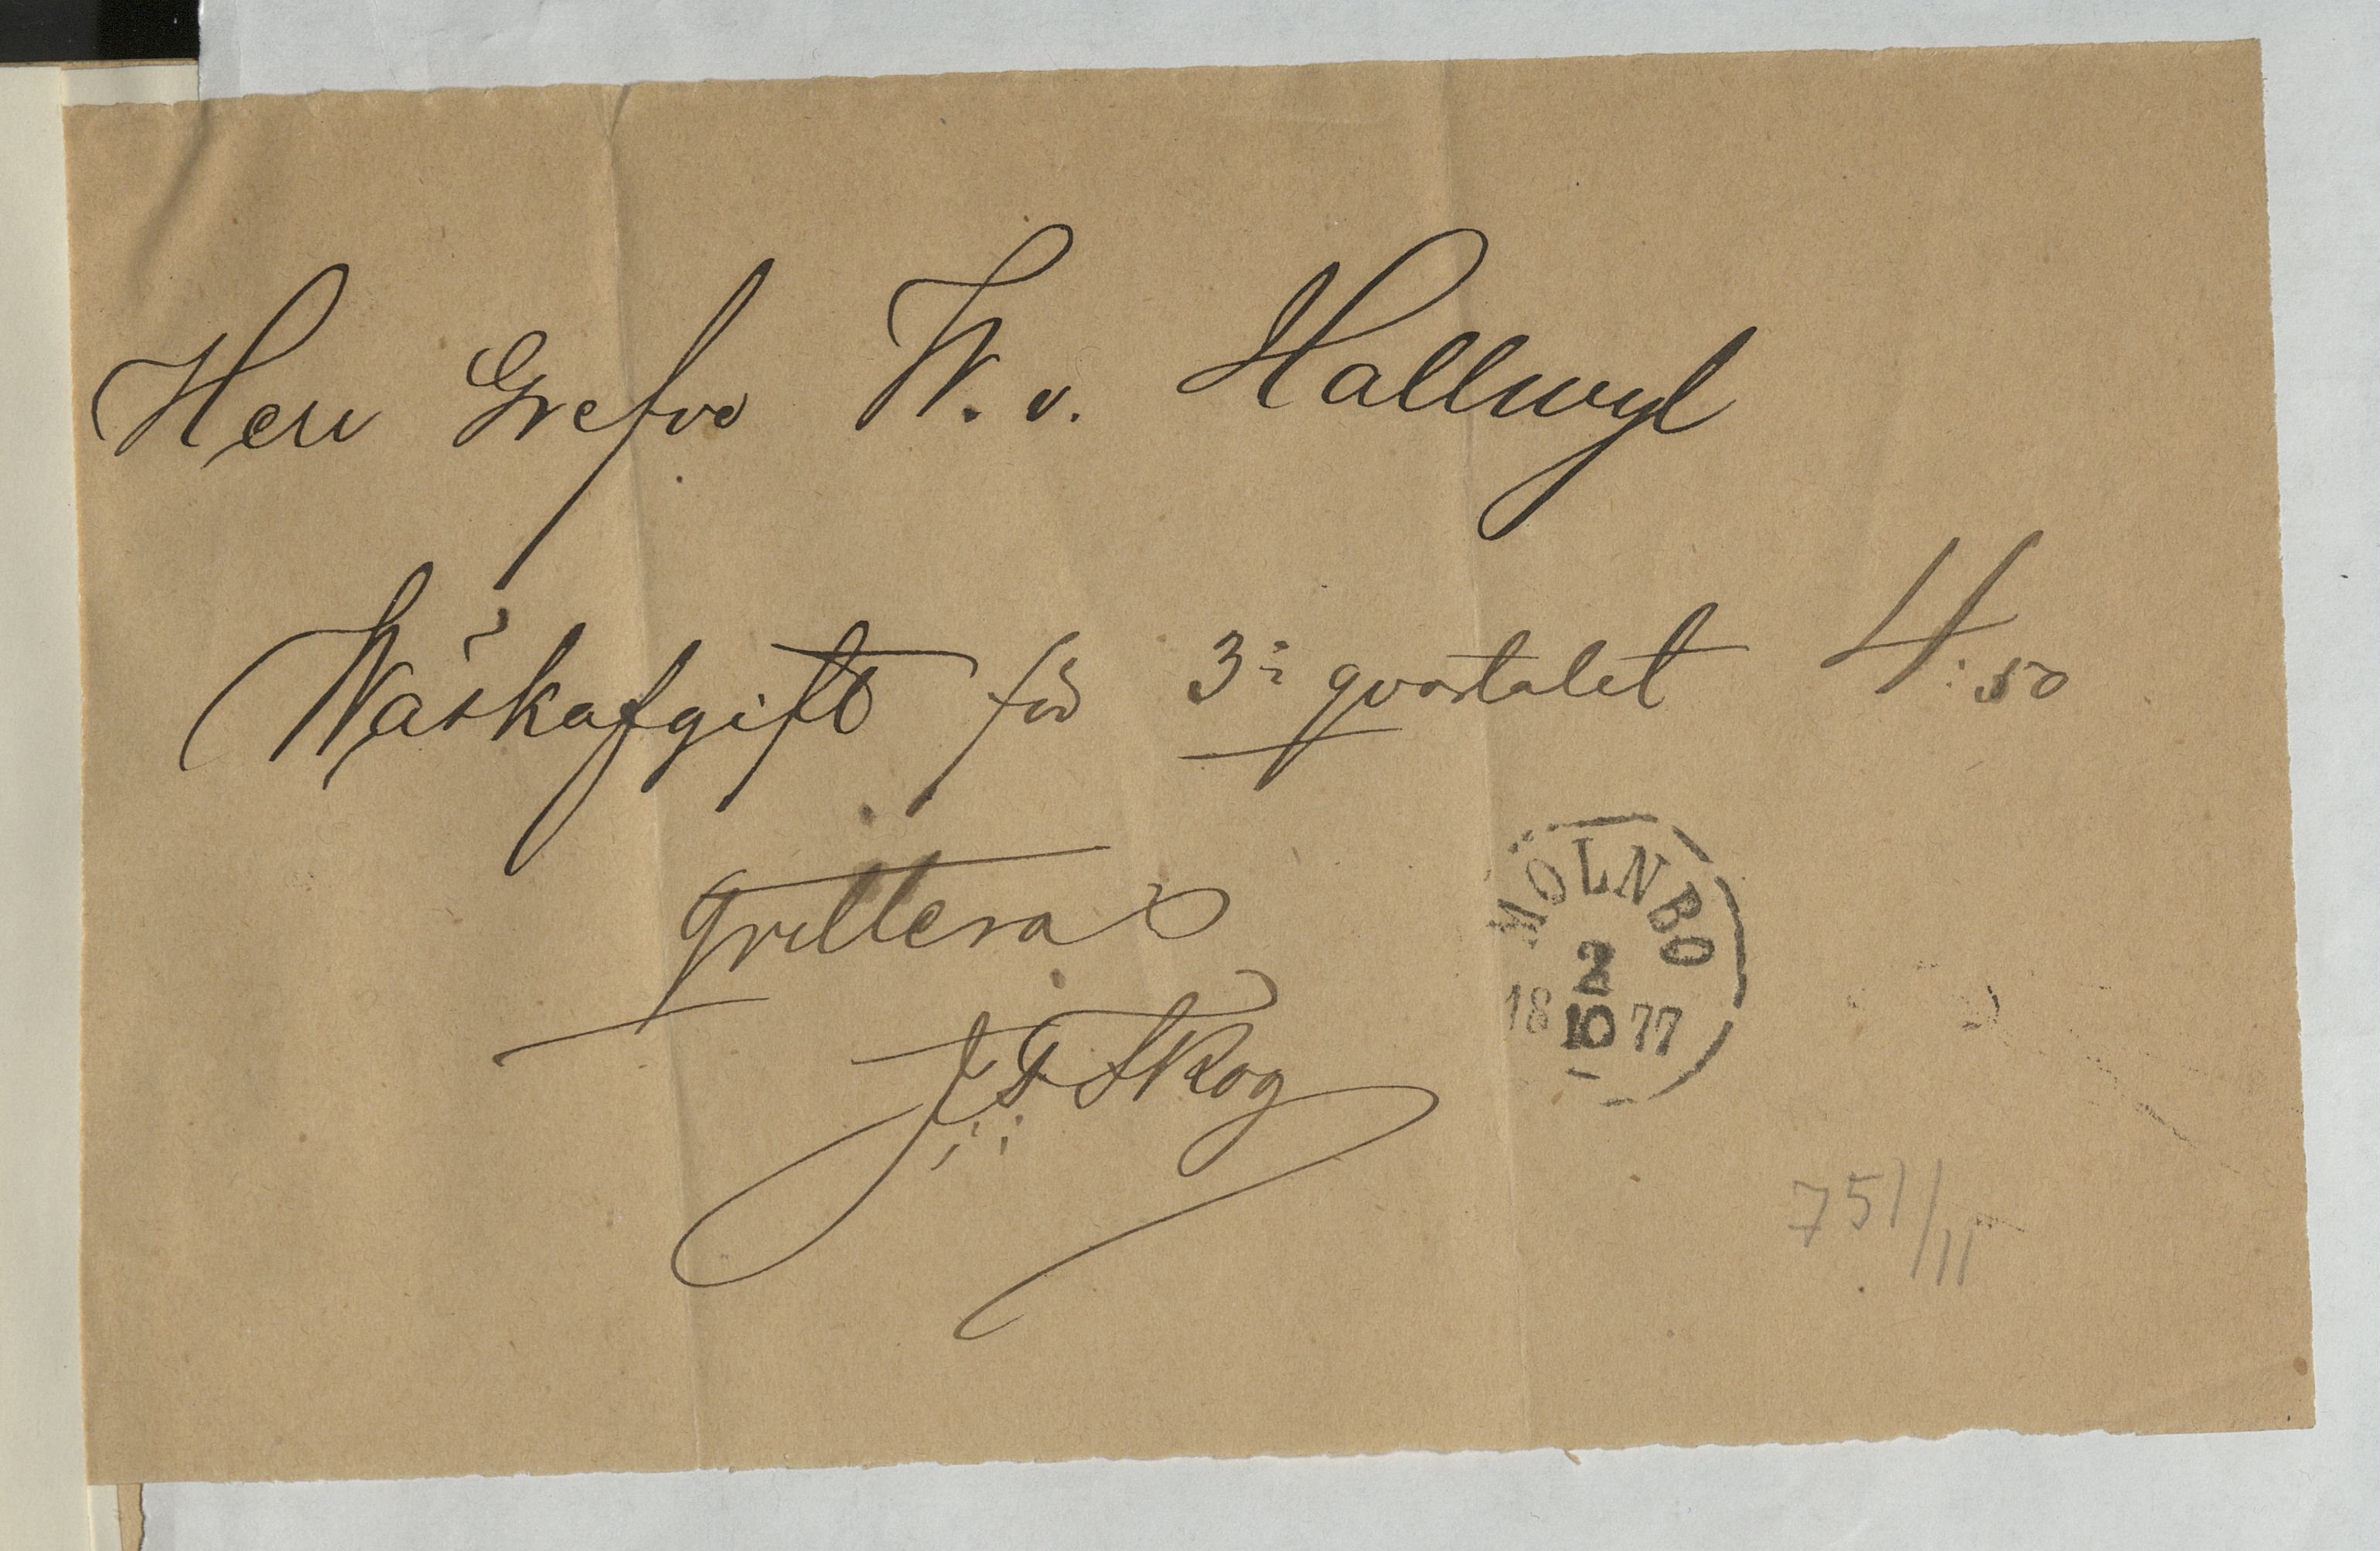 Herr Grefve W. v. Hallwyl
Wäskafgift för 3: qvartalet 4: 50
qvitteras
J F Skog
MOLNBO
2
18 10 77
751/11